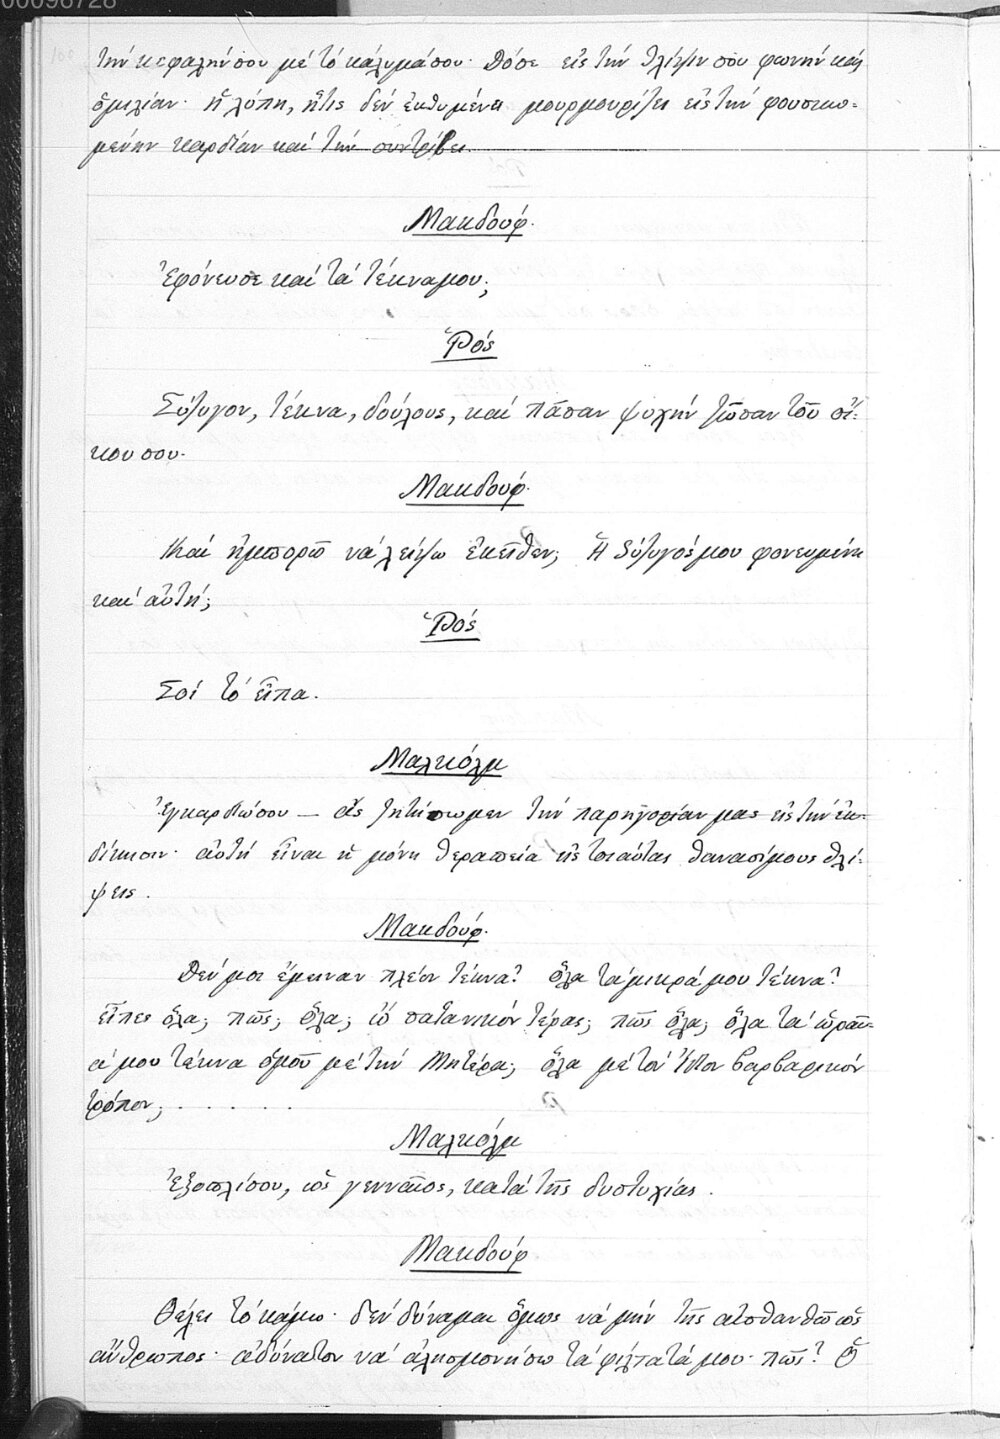 00096728
τὴν κεφαλήν σου μέ τό κάλυμά σου· δόσε εἰς τὴν θλίψιν σου φωνήν καί
ὁμιλίαν· ἡ λύπη, ἥτις δέν ἐκθυμένει μουρμουρίζει εἰς τήν φουσκω-
μένην καρδίαν καί τήν συντρίβει.
Μακδούφ.
Ἐφόνευσε καί τά τέκνα μου;
Ῥός
Σύζυγον, τέκνα, δούλους, καί πᾶσαν ψυχήν ζῶσαν τοῦ οἴ-
κου σου.
Μακδούφ.
Καί ἠμπορῶ νά λείψω ἐκεῖθεν; Ἡ σύζυγός μου φονευμένη
καί αὐτή;
Ῥός
Σοί τό εἶπα.
Μαλκόλμ
Ἐγκαρδιώσου — ἄς ζητήσωμεν τήν παρηγορίαν μας εἰς τήν ἐκ-
δίκησιν· αὐτή εἶναι ἡ μόνη θεραπεία εἰς τοιαύτας θανασίμους θλί-
ψεις.
Μακδούφ.
Δέν μοι ἔμειναν πλέον τέκνα? ὅλα τά μικρά μου τέκνα?
εἶπες ὅλα; πῶς; ὅλα; ὦ σατανικόν τέρας; πῶς ὅλα; ὅλα τά ὡραῖ-
ά μου τέκνα ὁμοῦ μέ τήν Μητέρα; ὅλα μέ τόν πλέον βαρβαρικόν
τρόπον; . . . . . .
Μαλκόλμ
Ἐξοπλίσου, ὡς γενναῖος, κατά τῆς δυστυχίας.
Μακδούφ
Θέλει τό κάμω· δέν δύναμαι ὅμως νά μήν τῆς αἰσθανθῶ ὡς
ἄνθρωπος· ἀδύνατον νά ἀλησμονήσω τά φίλτατά μου· πῶς? Ὁ